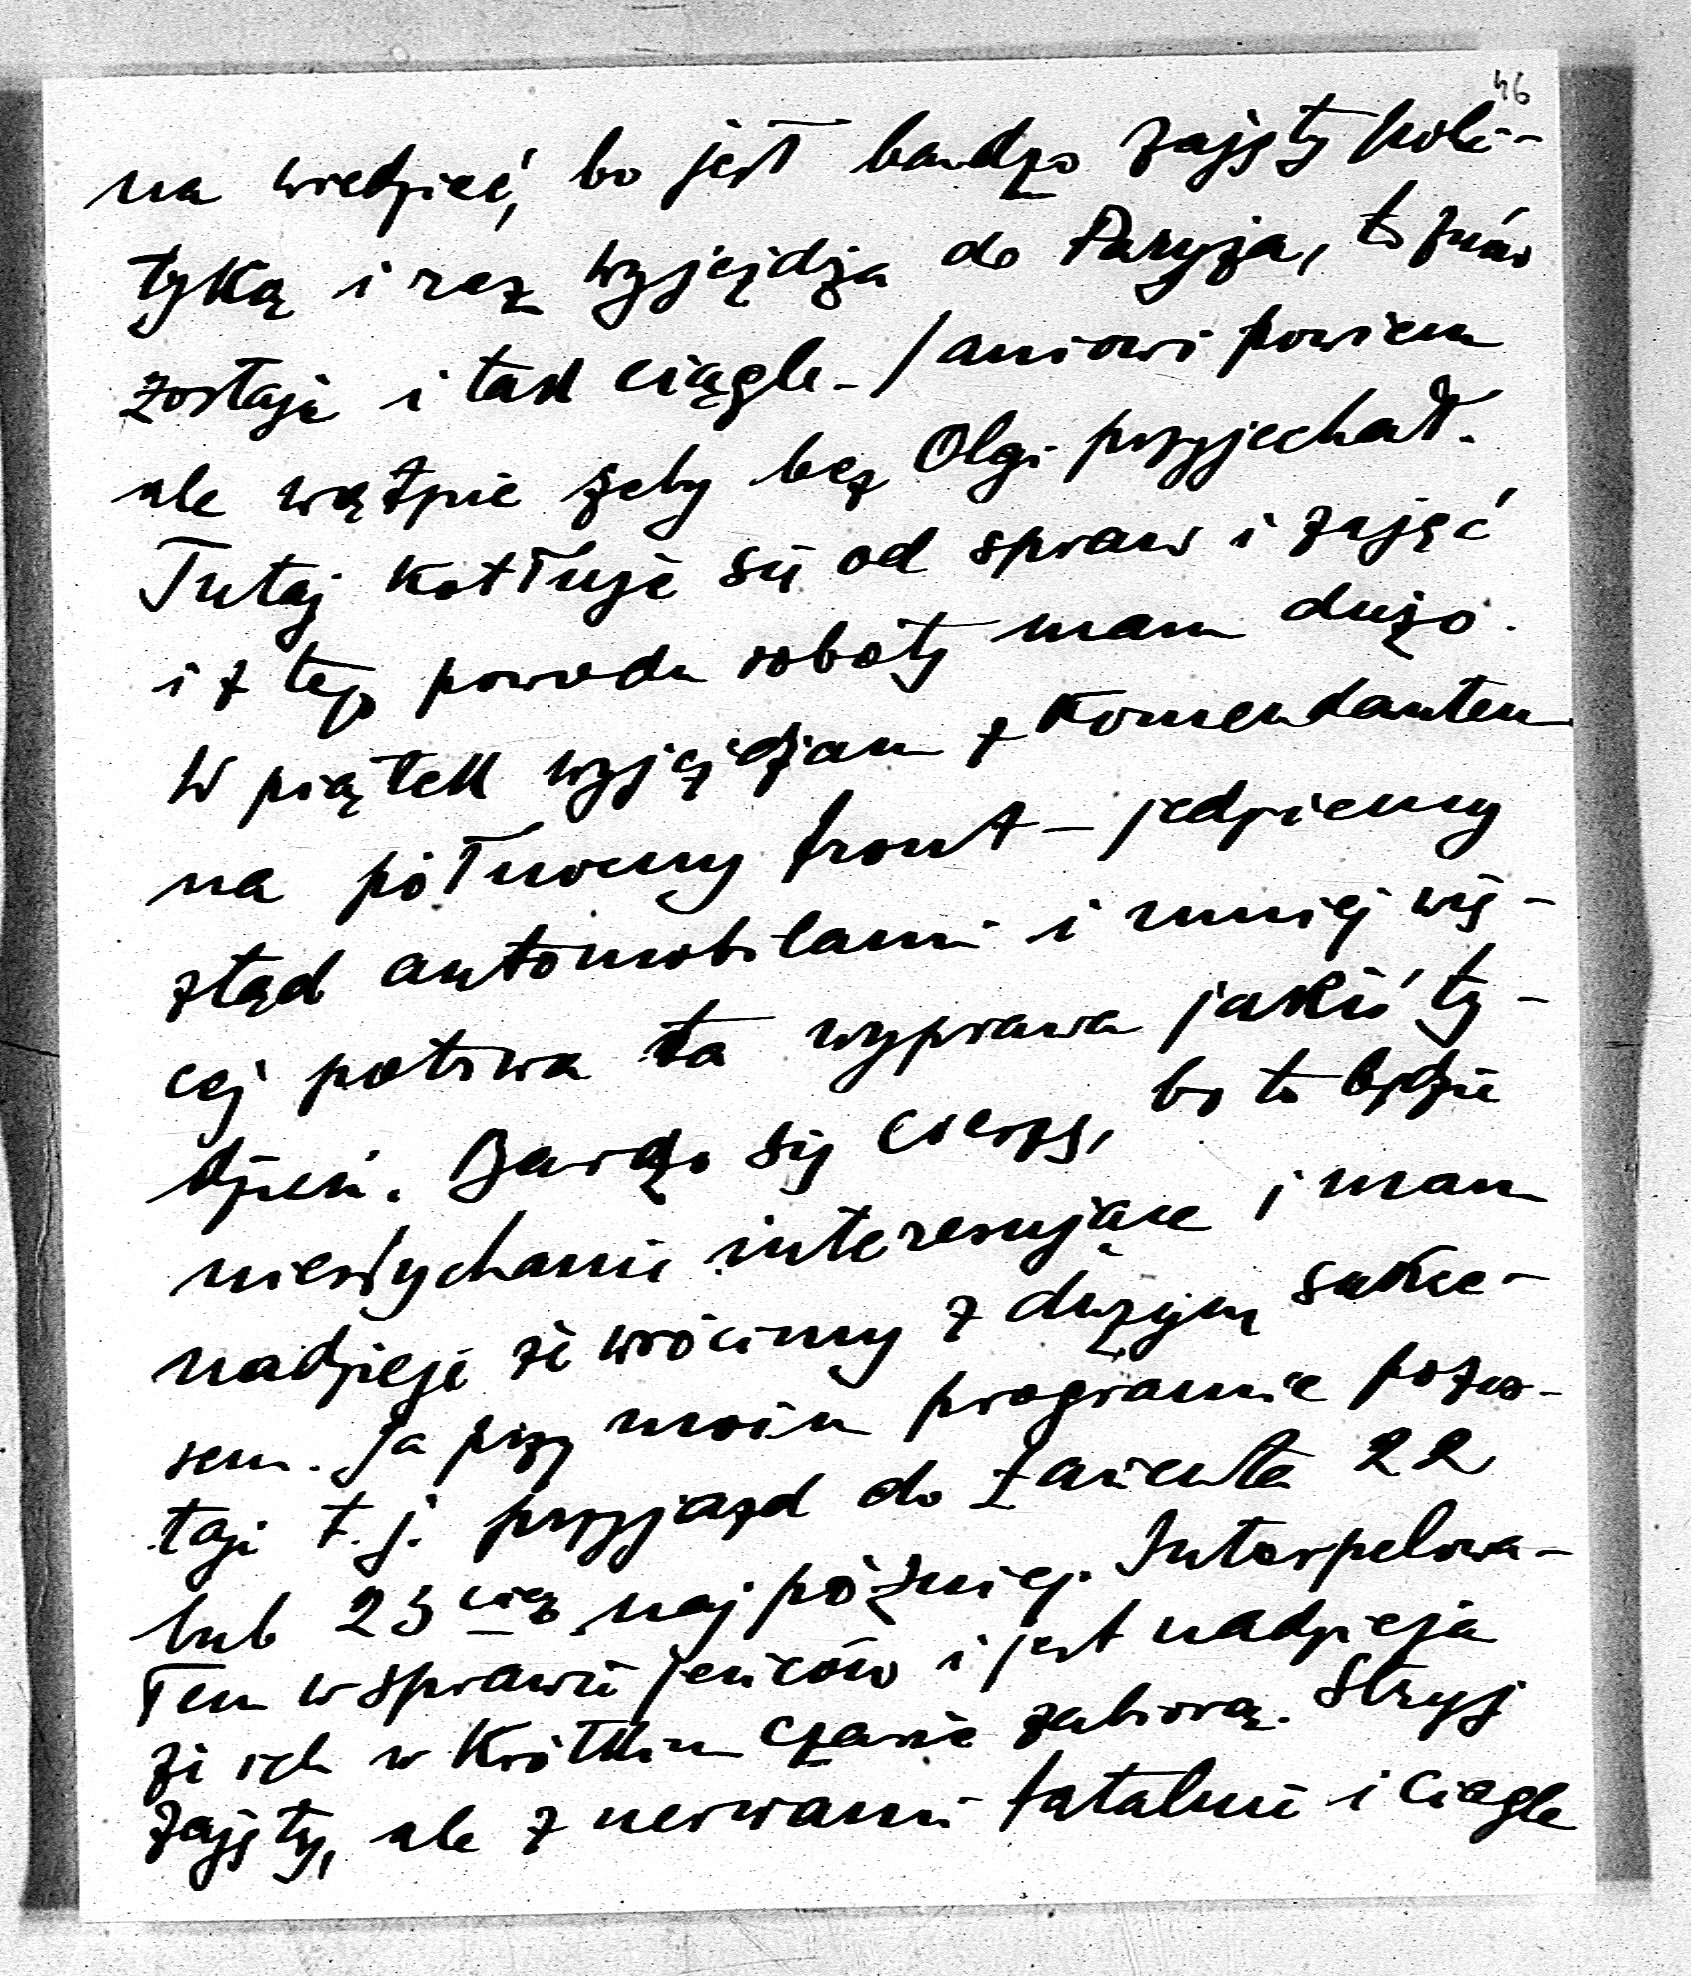 46
na wiedzieć, bo jest bardzo zajęty poli-
tyką i raz wyjeżdża do Paryża, to znów
zostaje i tak ciągle - Janiowi powiem
ale wątpie żeby bez Olgi przyjechał.
Tutaj kotłuje się od spraw i zajęć
i z tego powodu roboty mam dużo.
W piątek wyjeżdżam z Komendantem
na północny front - jedziemy
ztąd automobilami i mniej wię-
cej potrwa ta wyprawa jakiś ty-
dzień. Bardzo się cieszę, bo to będzie
niesłychanie interesujące i mam
nadzieję że wrócimy z dużym sukce-
sem. Ja przy moim programie pozos-
taję t.j. przyjazd do Łańcuta 22
lub 23 najpóźniej. Interpelowa-
łem w sprawie jeńców i jest nadzieja
że ich w krótkim czasie zabiorą. Stryj
zajęty, ale z nerwami fatalnie i ciągle